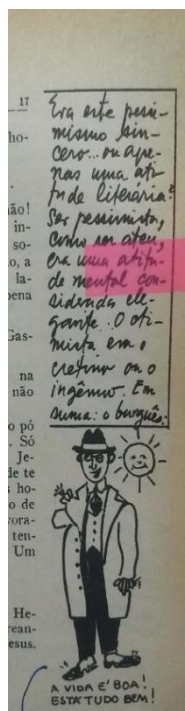 17
ho-
ão!
in-
so-
o, a
la-
pena
Gas-
na
não
o pó
. Só
Je-
de te
s ho-
o de
vora-
ten-
Um
He-
rean-
esus.
Era este pessi-
mismo sin-
cero... ou ape-
nas uma ati-
tude literária?
Ser pessimista,
como ser ateu,
era uma atitu-
de mental con-
siderada ele-
gante. O oti-
mista era o
cretino ou o
ingênuo. Em
suma: o burguês.
A VIDA E' BOA!
ESTÁ TUDO BEM!